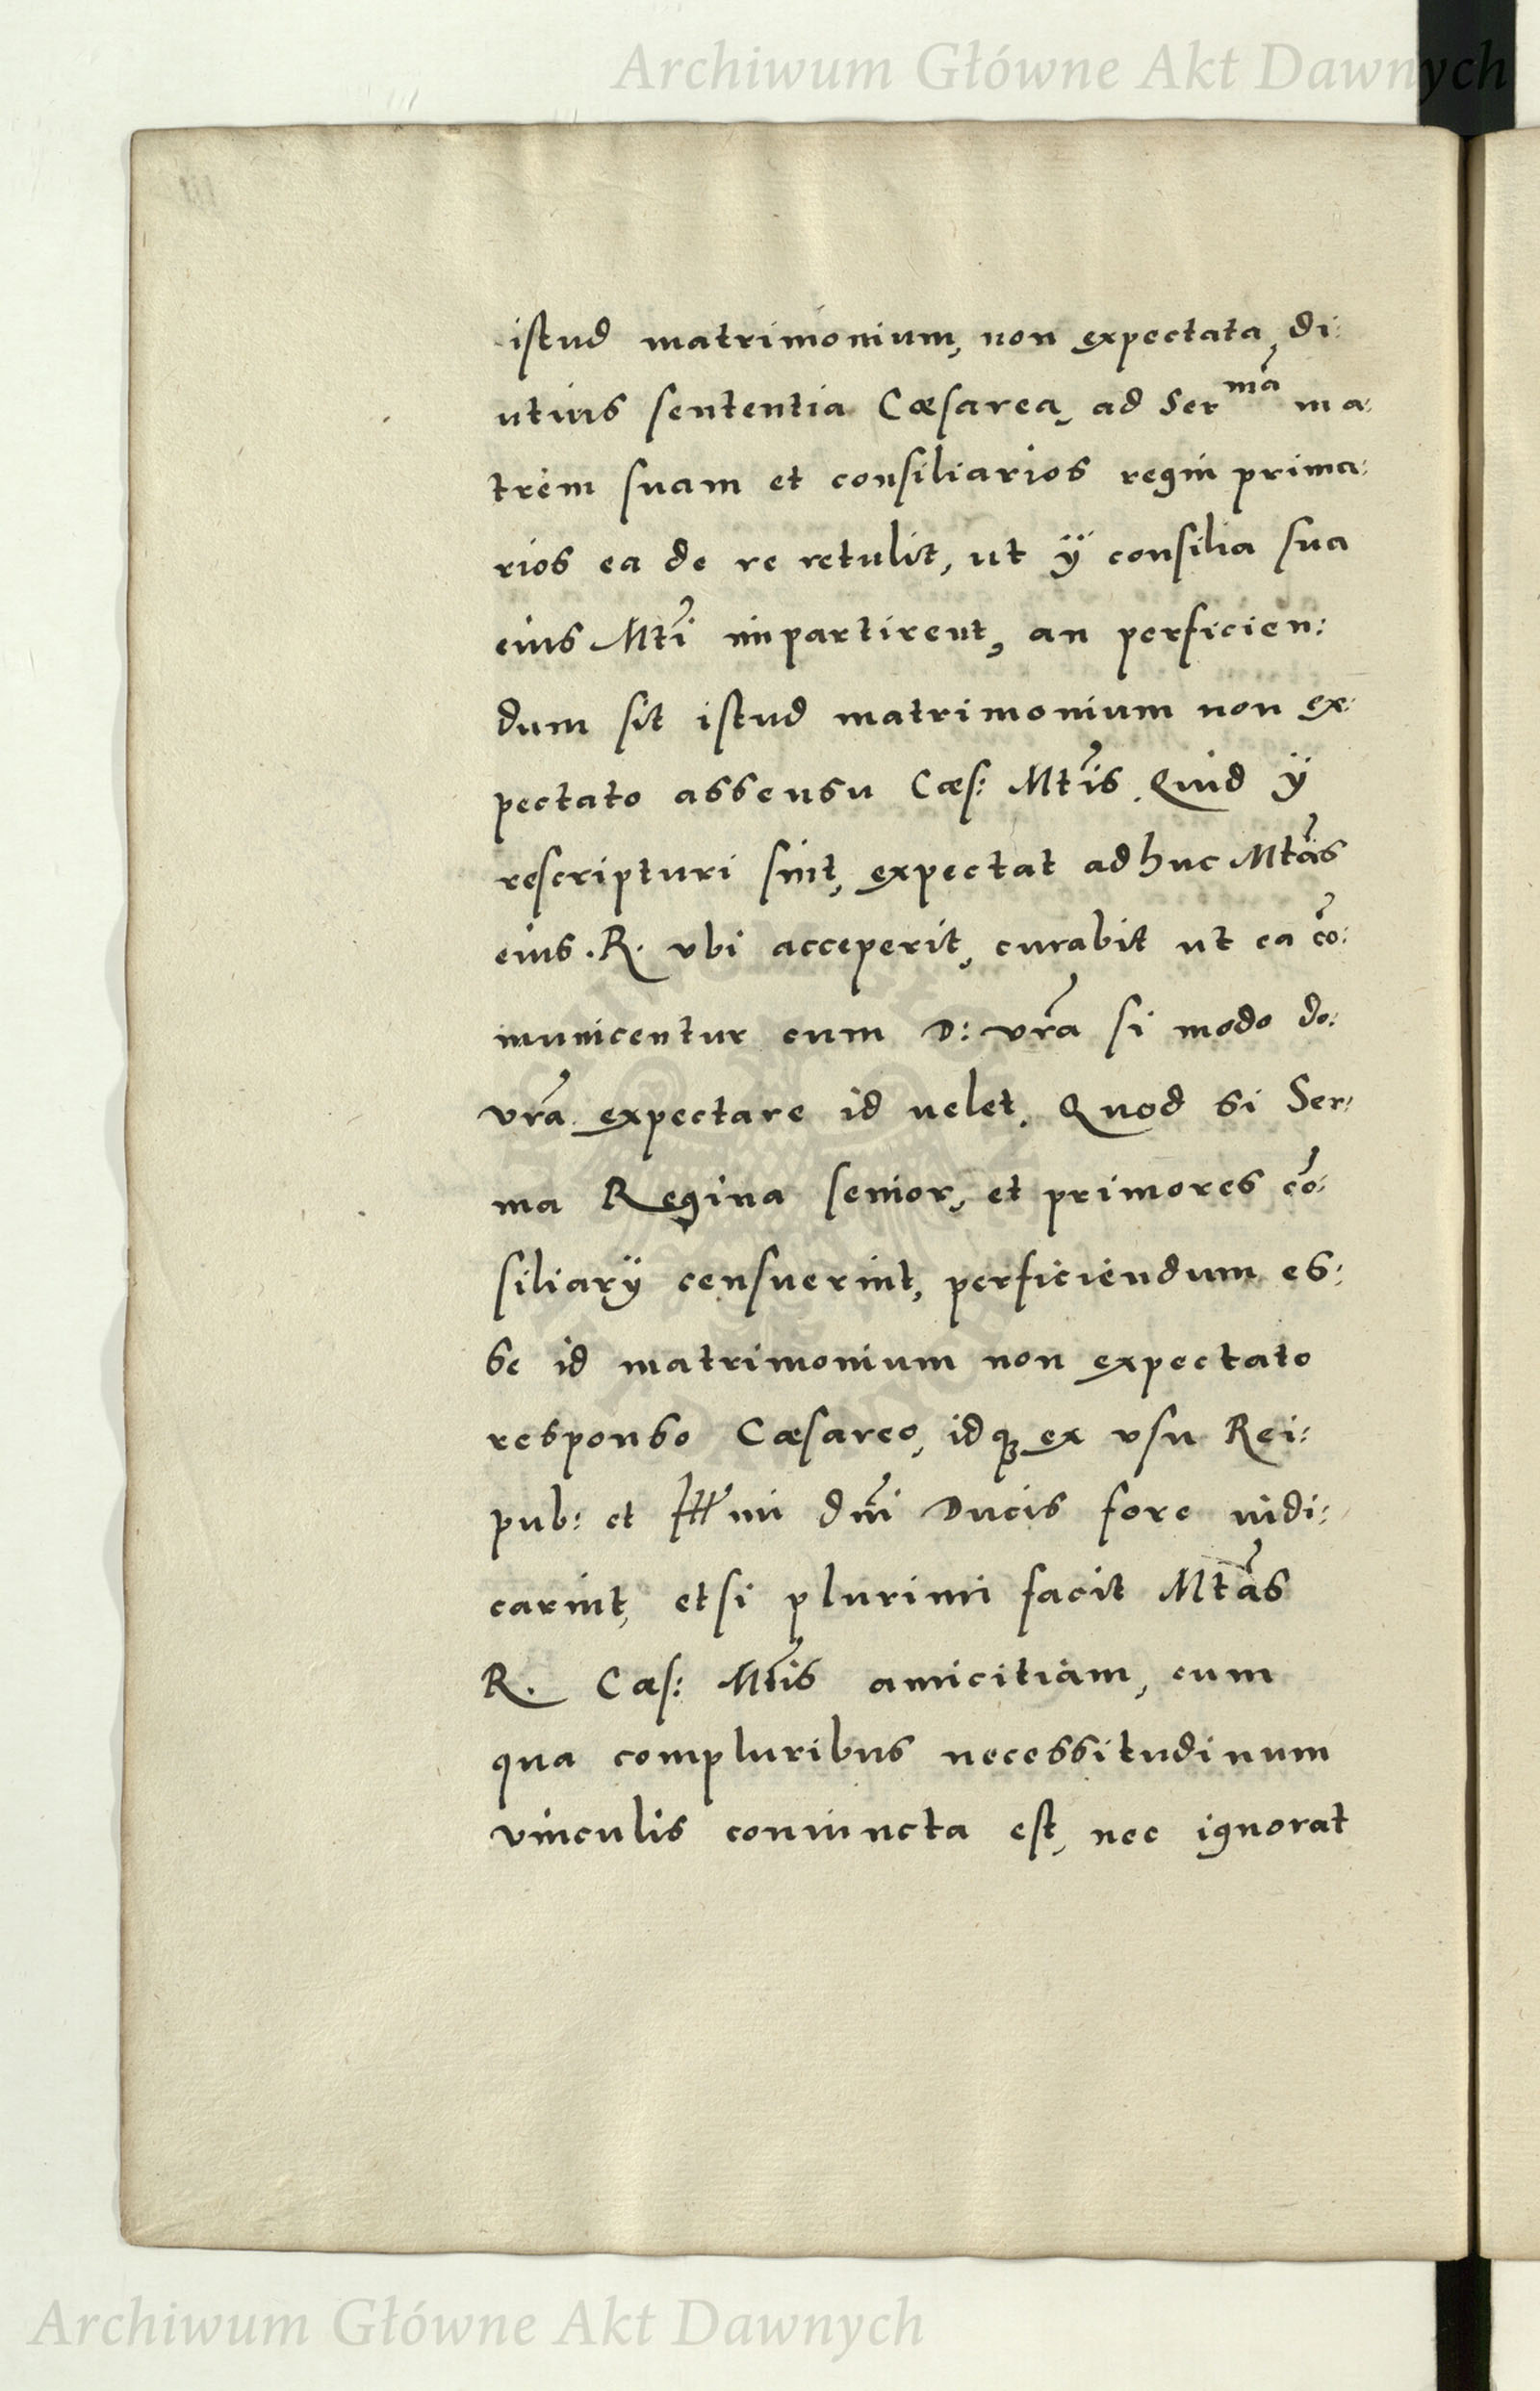 Archiwum Główne Akt Dawnych
istud matrimonium, non expectata, di:
utius sententia Cæsarea, ad Ser^mã ma:
trem suam et consiliarios regni prima:
rios ea de re retulit, ut ÿ consilia sua
eius Mti impartirent, an perficien:
dum sit istud matrimonium non ex:
pectato assensu Cæs: Mtis. Quid ÿ
rescripturi sint, expectat adhuc Mtas
eius .R. vbi acceperit, curabit ut ea cõ:
municentur cum D: vrã si modo do:
vrã expectare id uelet. Quod si Ser:
ma Regina senior, et primores cõ:
siliarÿ censuerint, perficiendum es:
se id matrimonium non expectato
responso Cæsareo, idq; ex vsu Rei:
pub: et Illmi dñi Ducis fore iudi:
carint, etsi plurimi facit Mtas
R. Cæs: Mtis amicitiam, cum
qua compluribus necessitudinum
vinculis coniuncta est, nec ignorat
Archiwum Główne Akt Dawnych